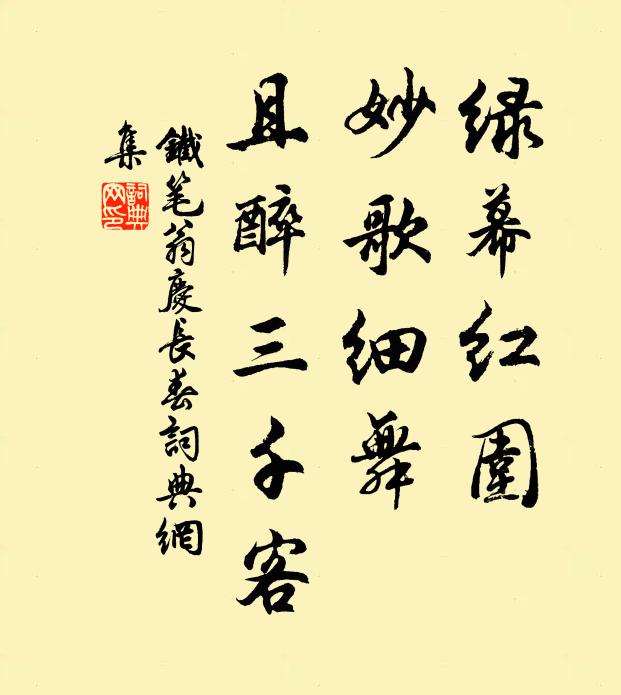 绿幕红围
妙歌细舞
且醉三千客
鐵笔翁慶長春詞典網
集
詞典
网印